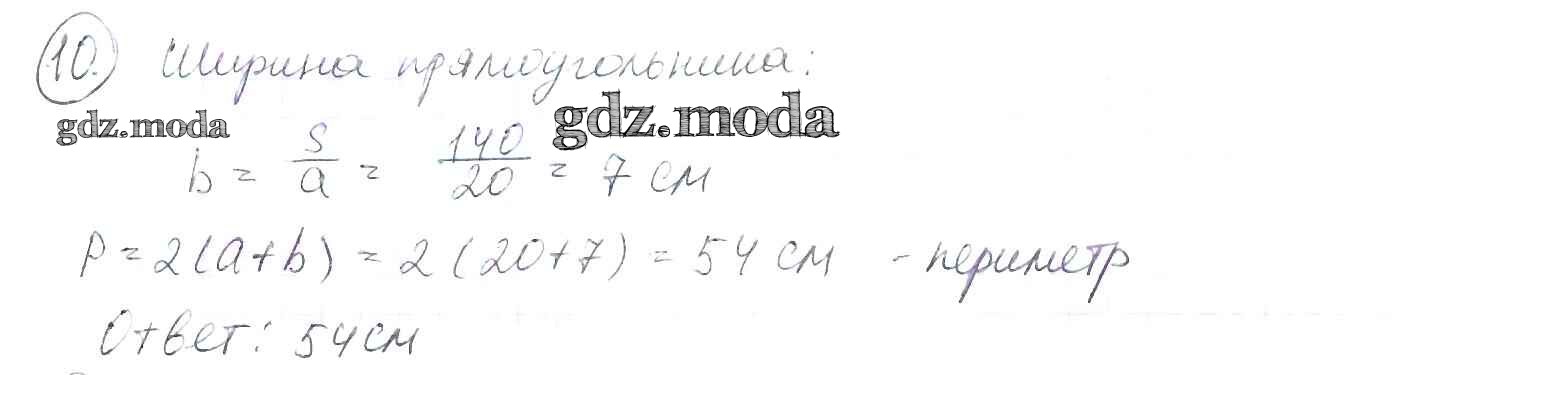 10. Ширина прямоугольника:
gdz.moda gdz.moda
b = S/a = 140/20 = 7 см
P = 2(a+b) = 2(20+7) = 54 см - периметр
Ответ: 54 см